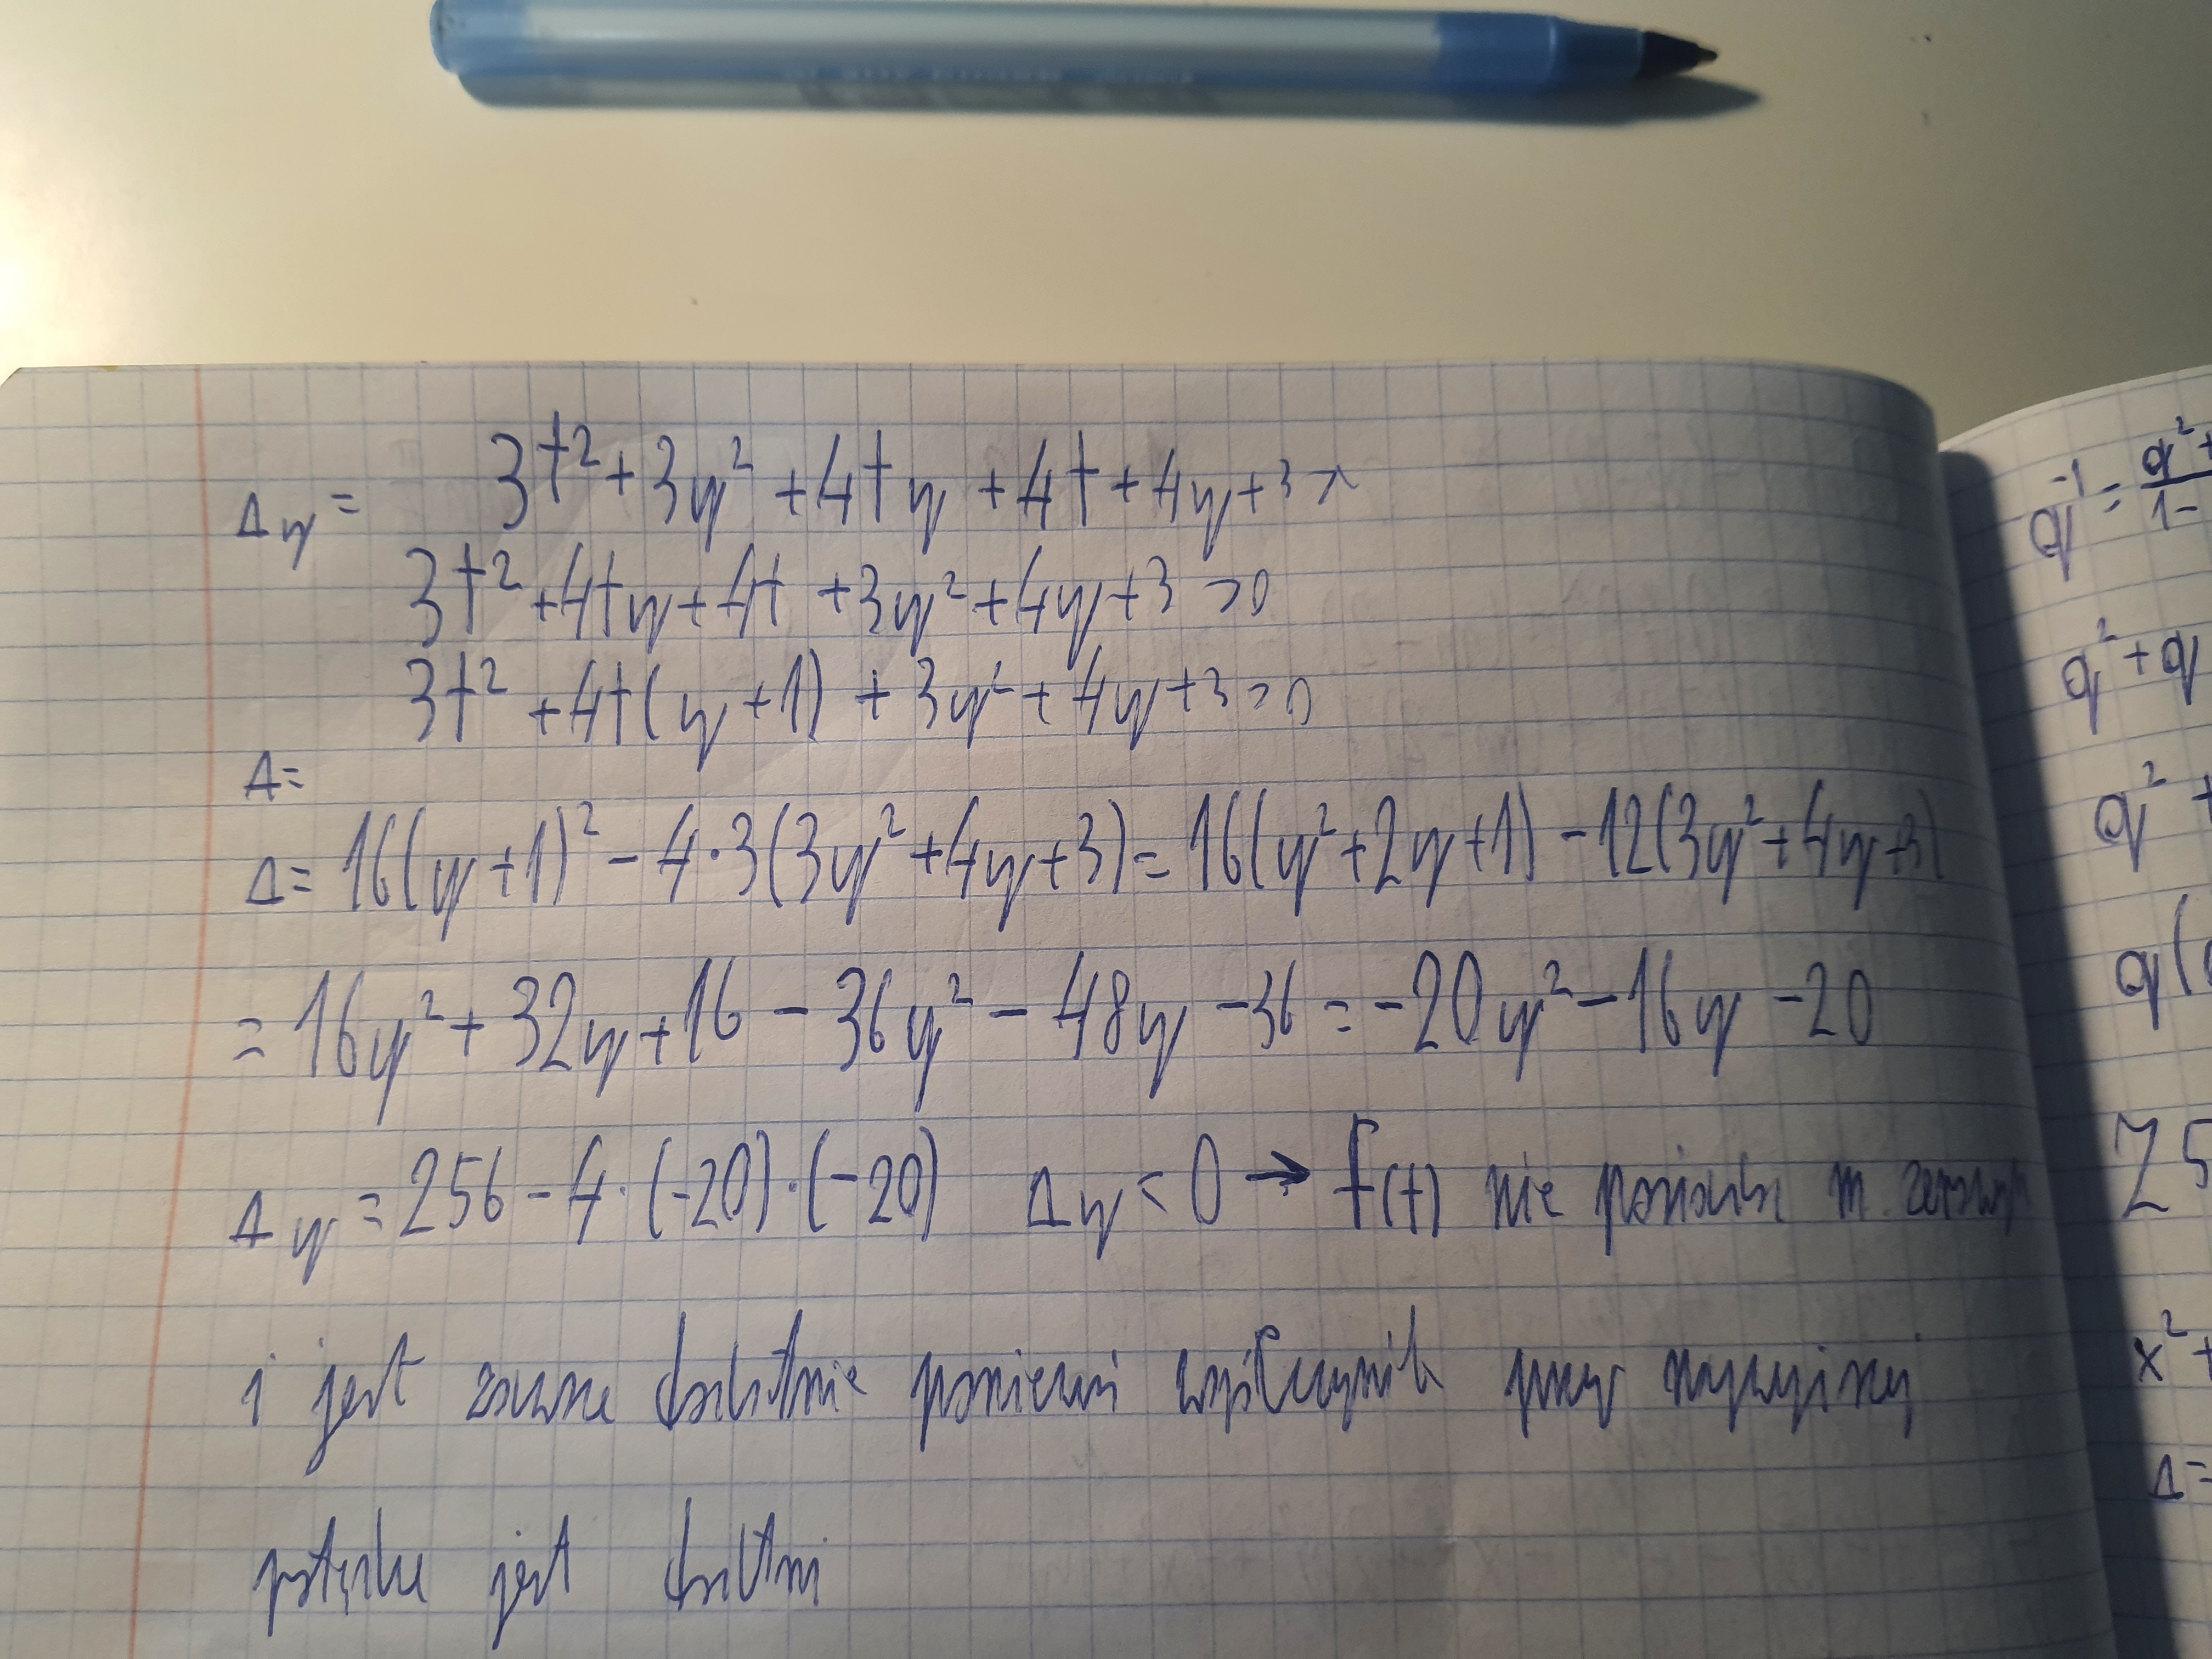 3t² + 3y² + 4ty + 4t + 4y + 3 >
Δy =
3t² + 4ty + 4t + 3y² + 4y + 3 > 0
3t² + 4t(y + 1) + 3y² + 4y + 3 = 0
Δ =
Δ = 16(y + 1)² - 4·3(3y² + 4y + 3) = 16(y² + 2y + 1) - 12(3y² + 4y + 3)
= 16y² + 32y + 16 - 36y² - 48y - 36 = -20y² - 16y - 20
Δy = 256 - 4·(-20)·(-20) Δy < 0 → f(t) nie posiada m. zerowych
i jest zawsze dodatnie ponieważ współczynnik przy najwyższej
potędze jest dodatni
q⁻¹ = q² +
1 -
q² + q
q² +
q(
Z 5
x² +
Δ =